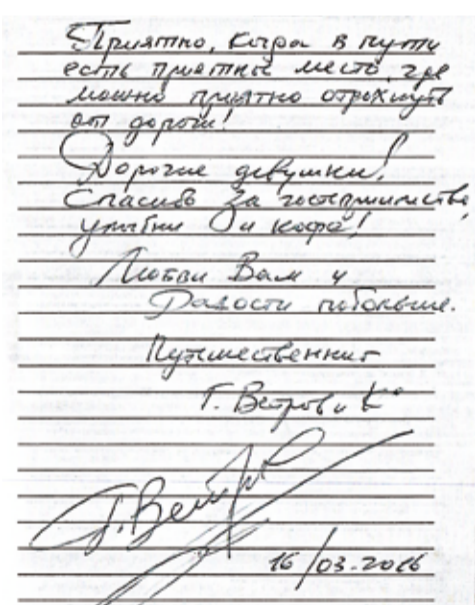 Приятно, когда в пути
есть приятное место, где
можно приятно отдохнуть
от дороги!
Дорогие девушки!
Спасибо за гостеприимство,
улыбки и кофе!
Любви Вам и
Радости побольше.
Путешественник
Г. Ветров и К°
Г. Ветров
16/03-2016